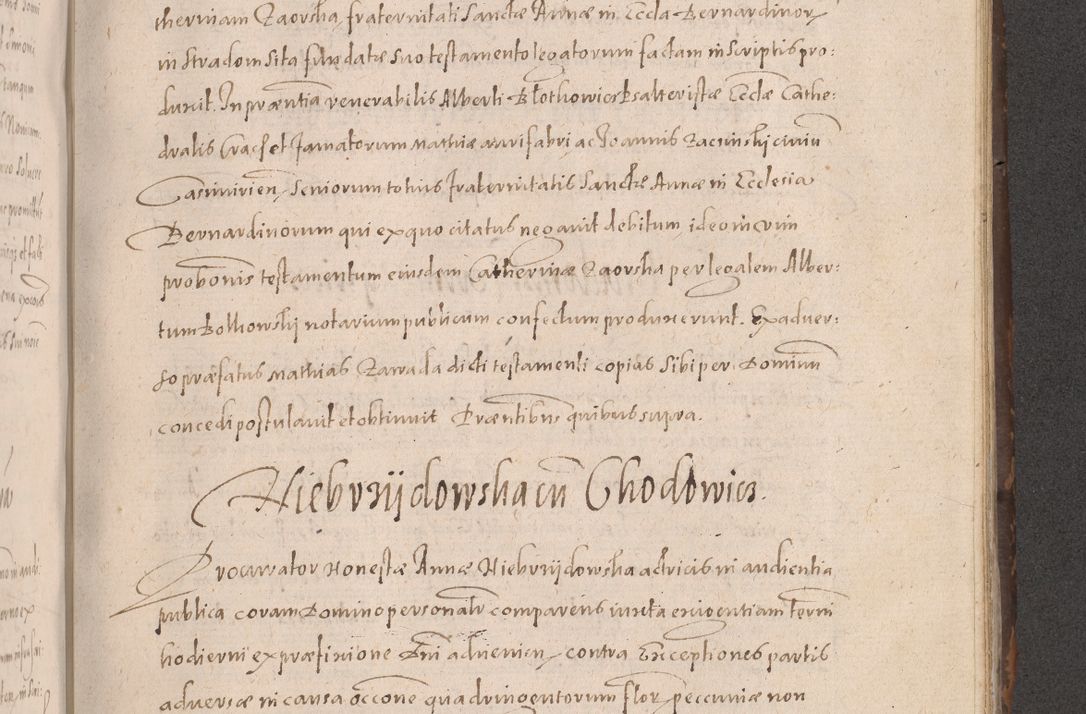 therinam Zaorska, fraternitati Sanctæ Annæ in Eccla Bernardinor
in Stradom sita fundatæ suo testamento legatorum factam in scriptis pro:
duxit. In præntia venerabilis Alberti Psalteristæ Ecclæ Cathe:
dralis Crac et famatorum Mathiæ aurifabri ac Joannis civiu
Casimirien, Seniorum totius fraternitatis Sanctæ Annæ in Ecclesia
Bernardinorum qui ex quo citatus negavit debitum, ideo in vim
probonis testamentum eiusdem Catherinæ Zaorska per legalem Alber:
tum Bolkowskij notarium publicum confectum produxerunt. Ex adver:
so præfatus Mathias Zawada dicti testamenti copias sibi per Dominum
concedi postulavit et obtinuit Præntibus quibus supra.
Niebrzijdowska cu Chodowicz.
Procurator Honestæ Annæ Niebrzijdowska actricis in audientia
publica coram Domino personalr comparens iuxta exigentiam termi
hodierni ex præfixione Dni advenien, contra Exceptiones partis
adversæ in causa occone quadringentorum flor peccuniæ non